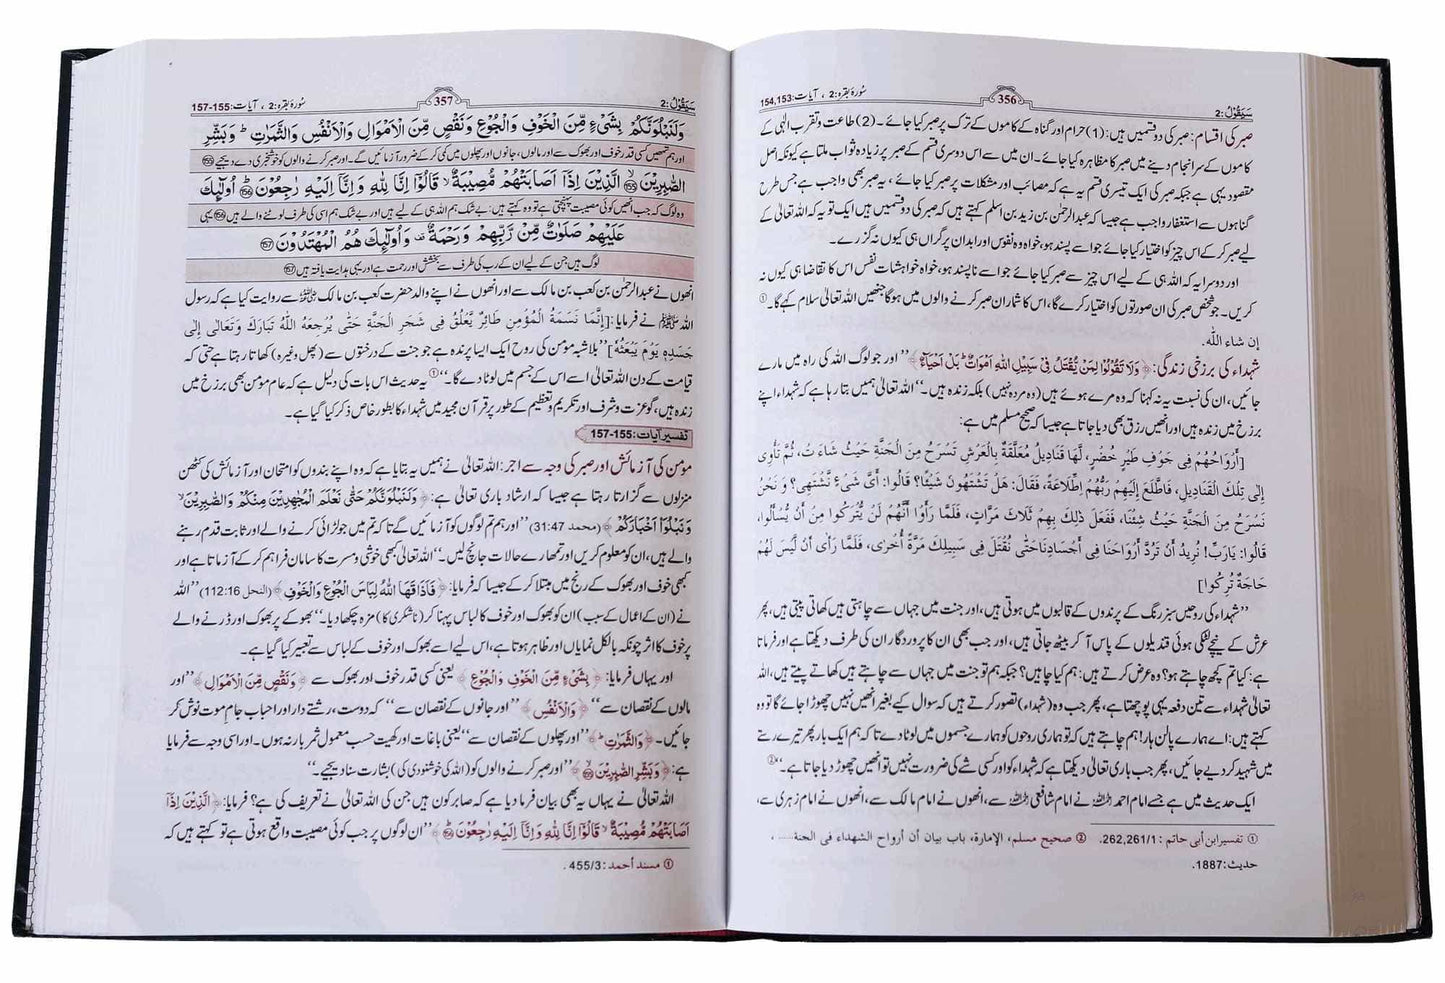 سَيَقُوْلُ :2
356
سُورهٔ بقره: 2 ، آیات: 154,153
صبر کی اقسام: صبر کی دو قسمیں ہیں: (1) حرام اور گناہ کے کاموں کے ترک پر صبر کیا جائے۔ (2) طاعت و تقرب الٰہی کے
کاموں کے سرانجام دینے میں صبر کا مظاہرہ کیا جائے۔ ان میں سے اس دوسری قسم کے صبر پر زیادہ ثواب ملتا ہے کیونکہ اصل
مقصود یہی ہے جبکہ صبر کی ایک تیسری قسم یہ ہے کہ مصائب اور مشکلات پر صبر کیا جائے، یہ صبر بھی واجب ہے جس طرح
گناہوں سے استغفار واجب ہے جیسا کہ عبدالرحمٰن بن زید بن اسلم کہتے ہیں کہ صبر کی دو قسمیں ہیں ایک تو یہ کہ اللہ تعالیٰ کے
لیے صبر کر کے اس چیز کو اختیار کیا جائے جو اسے پسند ہو، خواہ وہ نفوس اور ابدان پر گراں ہی کیوں نہ گزرے۔
اور دوسرا یہ کہ اللہ ہی کے لیے اس چیز سے صبر کیا جائے جو اسے ناپسند ہو، خواہ خواہشات نفس اس کا تقاضا ہی کیوں نہ
کریں۔ جو شخص صبر کی ان صورتوں کو اختیار کرے گا، اس کا شمار ان صبر کرنے والوں میں ہوگا جنھیں اللہ تعالیٰ سلام کہے گا۔ ①
إن شاء اللّٰه.
شہداء کی برزخی زندگی: ﴿ وَلَا تَقُوْلُوْا لِمَنْ يُّقْتَلُ فِيْ سَبِيْلِ اللّٰهِ اَمْوَاتٌ ۭ بَلْ اَحْيَاۗءٌ ﴾ ’’ اور جو لوگ اللہ کی راہ میں مارے
جائیں، ان کی نسبت یہ نہ کہنا کہ وہ مرے ہوئے ہیں (وہ مردہ نہیں) بلکہ زندہ ہیں۔‘‘ اللہ تعالیٰ ہمیں بتا رہا ہے کہ شہداء اپنے
برزخ میں زندہ ہیں اور انھیں رزق بھی دیا جاتا ہے جیسا کہ صحیح مسلم میں ہے:
[أَرْوَاحُهُمْ فِي جَوْفِ طَيْرٍ خُضْرٍ، لَهَا قَنَادِيلُ مُعَلَّقَةٌ بِالْعَرْشِ تَسْرَحُ مِنَ الْجَنَّةِ حَيْثُ شَاءَتْ، ثُمَّ تَأْوِي
إِلَى تِلْكَ الْقَنَادِيلِ، فَاطَّلَعَ إِلَيْهِمْ رَبُّهُمُ اطِّلَاعَةً، فَقَالَ: هَلْ تَشْتَهُونَ شَيْئًا؟ قَالُوا: أَيَّ شَيْءٍ نَشْتَهِي؟ وَ نَحْنُ
نَسْرَحُ مِنَ الْجَنَّةِ حَيْثُ شِئْنَا، فَفَعَلَ ذٰلِكَ بِهِمْ ثَلَاثَ مَرَّاتٍ، فَلَمَّا رَأَوْا أَنَّهُمْ لَنْ يُتْرَكُوا مِنْ أَنْ يُسْأَلُوا،
قَالُوا: يَارَبِّ! نُرِيدُ أَنْ تَرُدَّ أَرْوَاحَنَا فِي أَجْسَادِنَا حَتّٰى نُقْتَلَ فِي سَبِيلِكَ مَرَّةً أُخْرٰى، فَلَمَّا رَأَى أَنْ لَيْسَ لَهُمْ
حَاجَةٌ تُرِكُوا]
’’شہداء کی روحیں سبز رنگ کے پرندوں کے قالبوں میں ہوتی ہیں، اور جنت میں جہاں سے چاہتی ہیں کھاتی پیتی ہیں، پھر
عرش کے نیچے لٹکی ہوئی قندیلوں کے پاس آ کر بیٹھ جاتی ہیں، اور جب بھی ان کا پروردگار ان کی طرف دیکھتا ہے اور فرماتا
ہے: کیا تم کچھ چاہتے ہو؟ وہ عرض کرتے ہیں: ہم کیا چاہیں؟ جبکہ ہم تو جنت میں جہاں سے چاہتے ہیں کھاتے پیتے ہیں، اللہ
تعالیٰ شہداء سے تین دفعہ یہی پوچھتا ہے، پھر جب وہ (شہداء) تصور کرتے ہیں کہ سوال کیے بغیر انھیں نہیں چھوڑا جائے گا تو وہ
کہتے ہیں: اے ہمارے پالن ہار! ہم چاہتے ہیں کہ تو ہماری روحوں کو ہمارے جسموں میں لوٹا دے تا کہ ہم ایک بار پھر تیرے رستے
میں شہید کر دیے جائیں، پھر جب باری تعالیٰ دیکھتا ہے کہ شہداء کو اور کسی شے کی ضرورت نہیں تو انھیں چھوڑ دیا جاتا ہے۔‘‘ ②
ایک حدیث میں ہے جسے امام احمد رحمہ اللہ نے امام شافعی رحمہ اللہ سے، انھوں نے امام مالک سے، انھوں نے امام زہری سے،
① تفسیر ابن أبی حاتم : 262,261/1. ② صحیح مسلم، الإمارة، باب بیان أن أرواح الشهداء فی الجنة.....،
حدیث: 1887.
سَيَقُوْلُ :2
357
سُورهٔ بقره: 2 ، آیات: 155-157
وَلَنَبْلُوَنَّكُمْ بِشَيْءٍ مِّنَ الْخَوْفِ وَالْجُوْعِ وَنَقْصٍ مِّنَ الْاَمْوَالِ وَالْاَنْفُسِ وَالثَّمَرٰتِ ۭ وَبَشِّرِ
اور ہم تمھیں کسی قدر خوف اور بھوک سے اور مالوں، جانوں اور پھلوں میں کمی کر کے ضرور آزمائیں گے۔ اور صبر کرنے والوں کو خوشخبری دے دیجیے 155
الصّٰبِرِيْنَ 155 الَّذِيْنَ اِذَآ اَصَابَتْهُمْ مُّصِيْبَةٌ ۙ قَالُوْٓا اِنَّا لِلّٰهِ وَاِنَّآ اِلَيْهِ رٰجِعُوْنَ 156 ۭ اُولٰۗىِٕكَ
وہ لوگ کہ جب انھیں کوئی مصیبت پہنچتی ہے تو وہ کہتے ہیں: بے شک ہم اللہ ہی کے لیے ہیں اور بے شک ہم اسی کی طرف لوٹنے والے ہیں 156 یہی
عَلَيْهِمْ صَلَوٰتٌ مِّنْ رَّبِّهِمْ وَرَحْمَةٌ ۣ وَاُولٰۗىِٕكَ هُمُ الْمُهْتَدُوْنَ 157
لوگ ہیں جن کے لیے ان کے رب کی طرف سے بخشش اور رحمت ہے اور یہی ہدایت یافتہ ہیں 157
انھوں نے عبدالرحمٰن بن کعب بن مالک سے اور انھوں نے اپنے والد حضرت کعب بن مالک رضی اللہ عنہ سے روایت کیا ہے کہ رسول
اللہ ﷺ نے فرمایا: [إِنَّمَا نَسَمَةُ الْمُؤْمِنِ طَائِرٌ يَّعْلُقُ فِي شَجَرِ الْجَنَّةِ حَتَّى يُرْجِعَهُ اللّٰهُ تَبَارَكَ وَتَعَالَى إِلَى
جَسَدِهِ يَوْمَ يَبْعَثُهُ] ’’بلاشبہ مومن کی روح ایک ایسا پرندہ ہے جو جنت کے درختوں سے (پھل وغیرہ) کھاتا رہتا ہے حتی کہ
قیامت کے دن اللہ تعالیٰ اسے اس کے جسم میں لوٹا دے گا۔‘‘ ① یہ حدیث اس بات کی دلیل ہے کہ عام مومن بھی برزخ میں
زندہ ہیں، گو عزت و شرف اور تکریم و تعظیم کے طور پر قرآن مجید میں شہداء کا بطور خاص ذکر کیا گیا ہے۔
تفسیر آیات: 155-157
مؤمن کی آزمائش اور صبر کی وجہ سے اجر: اللہ تعالیٰ نے ہمیں یہ بتایا ہے کہ وہ اپنے بندوں کو امتحان اور آزمائش کی کٹھن
منزلوں سے گزارتا رہتا ہے جیسا کہ ارشاد باری تعالیٰ ہے: ﴿ وَلَنَبْلُوَنَّكُمْ حَتّٰى نَعْلَمَ الْمُجٰهِدِيْنَ مِنْكُمْ وَالصّٰبِرِيْنَ ۙ
وَنَبْلُوَا۟ اَخْبَارَكُمْ ﴾ (محمد 31:47) ’’اور ہم تم لوگوں کو آزمائیں گے تاکہ تم میں جو لڑائی کرنے والے اور ثابت قدم رہنے
والے ہیں، ان کو معلوم کریں اور تمھارے حالات جانچ لیں۔‘‘ اللہ تعالیٰ کبھی خوشی و مسرت کا سامان فراہم کر کے آزماتا ہے اور
کبھی خوف اور بھوک کے رنج میں مبتلا کر کے جیسا کہ فرمایا: ﴿ فَاَذَاقَهَا اللّٰهُ لِبَاسَ الْجُوْعِ وَالْخَوْفِ ﴾ (النحل 112:16) ’’اللہ
نے (ان کے اعمال کے سبب) ان کو بھوک اور خوف کا لباس پہنا کر (ناشکری کا) مزہ چکھا دیا۔‘‘ بھوکے پر بھوک اور ڈرنے والے
پر خوف کا اثر چونکہ بالکل نمایاں اور ظاہر ہوتا ہے، اس لیے اسے بھوک اور خوف کے لباس سے تعبیر کیا گیا ہے۔
اور یہاں فرمایا: ﴿ بِشَيْءٍ مِّنَ الْخَوْفِ وَالْجُوْعِ ﴾ یعنی کسی قدر خوف اور بھوک سے ﴿ وَنَقْصٍ مِّنَ الْاَمْوَالِ ﴾ ’’اور
مالوں کے نقصان سے‘‘ ﴿ وَالْاَنْفُسِ ﴾ ’’ اور جانوں کے نقصان سے‘‘ کہ دوست، رشتے دار اور احباب جامِ موت نوش کر
جائیں۔ ﴿ وَالثَّمَرٰتِ ۭ ﴾ ’’اور پھلوں کے نقصان سے‘‘ یعنی باغات اور کھیت حسب معمول ثمر بار نہ ہوں۔ اور اسی وجہ سے فرمایا
ہے: ﴿ وَبَشِّرِ الصّٰبِرِيْنَ 155 ﴾ ’’اور صبر کرنے والوں کو (اللہ کی خوشنودی کی) بشارت سنا دیجیے۔‘‘
اللہ تعالیٰ نے یہاں یہ بھی بیان فرما دیا ہے کہ صابر کون ہیں جن کی اللہ تعالیٰ نے تعریف کی ہے؟ فرمایا: ﴿ الَّذِيْنَ اِذَآ
اَصَابَتْهُمْ مُّصِيْبَةٌ ۙ قَالُوْٓا اِنَّا لِلّٰهِ وَاِنَّآ اِلَيْهِ رٰجِعُوْنَ 156 ﴾ ’’ان لوگوں پر جب کوئی مصیبت واقع ہوتی ہے تو کہتے ہیں کہ
① مسند أحمد : 455/3 .